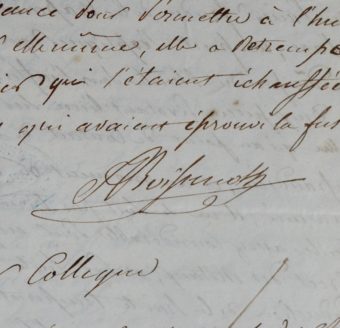 pour permettre à l'hu
elle même, elle a Retrempé
qui l'étaient échauffée
qui avaient éprouvé la fus
ABoissenot
Collegue